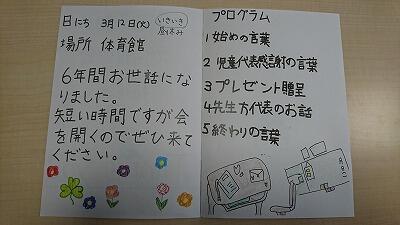 日にち 3月12日(火)
いきいき
昼休み
場所 体育館
6年間お世話にな
りました。
短い時間ですが会
を開くのでぜひ来て
ください。
プログラム
1始めの言葉
2児童代表感謝の言葉
3プレゼント贈呈
4先生方代表のお話
5終わりの言葉